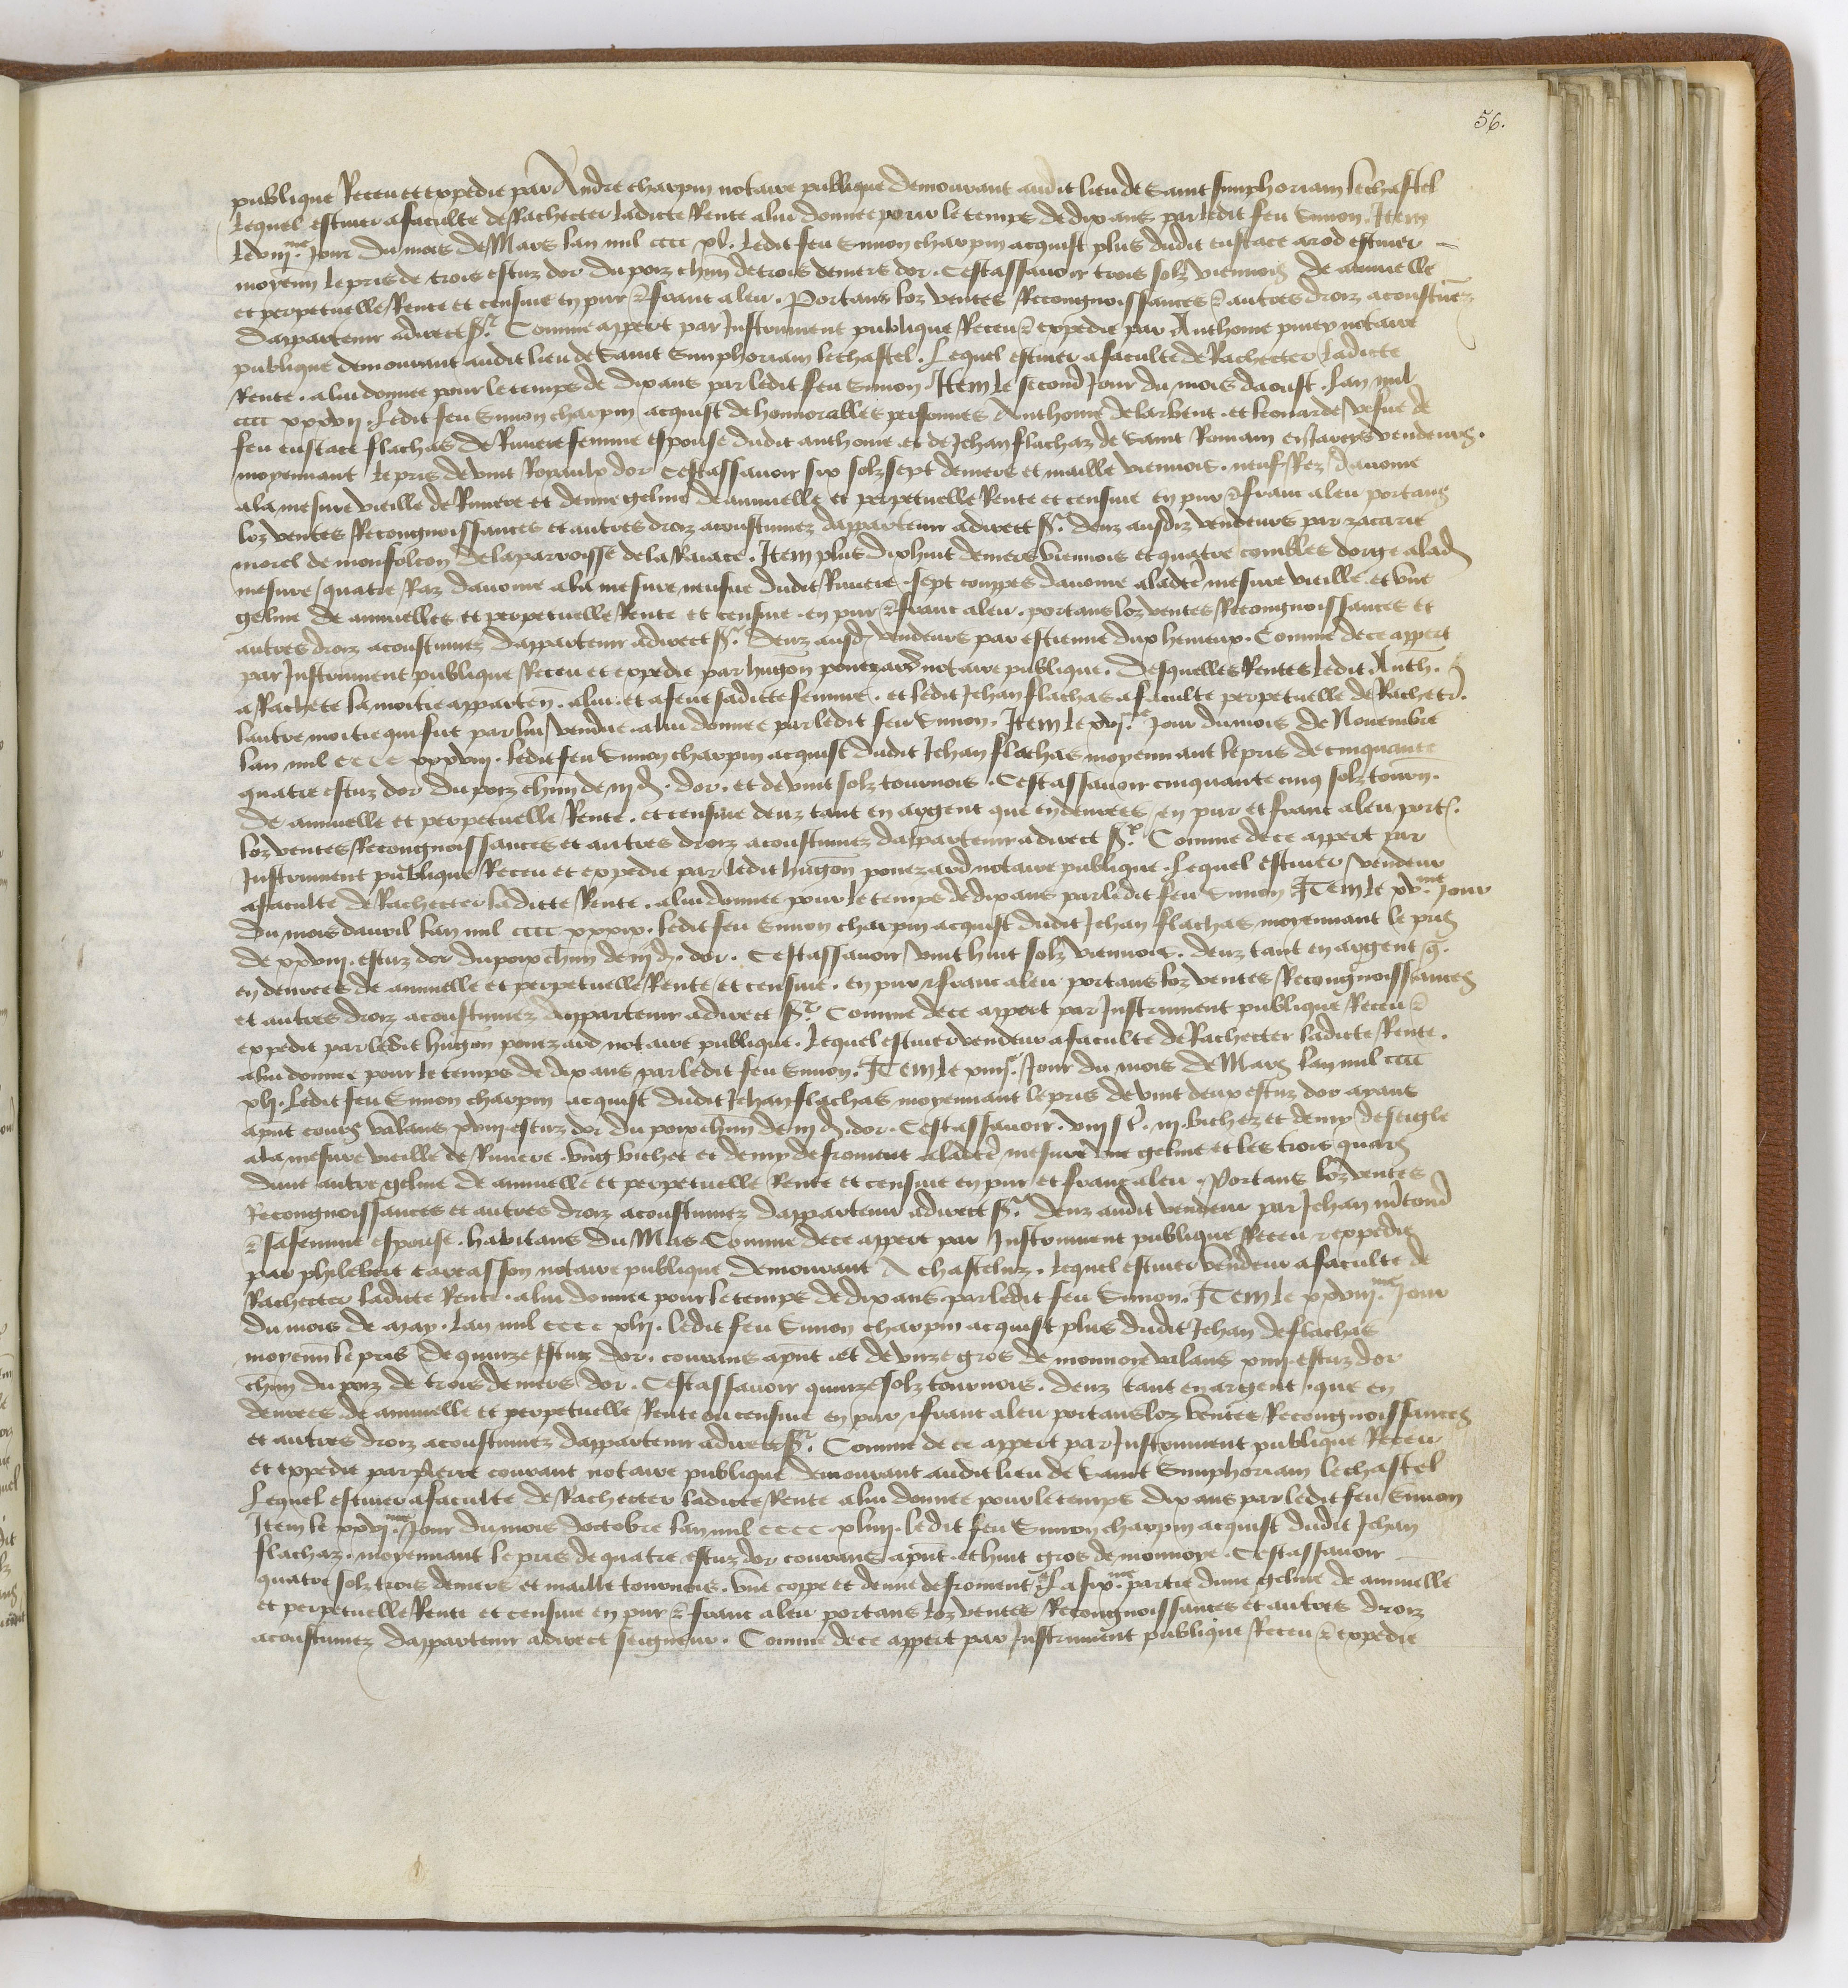 56.
publique Receu et expedie par Andre charpin notaire publique demourant audit lieu de Saint Simphoriam lechastel
Lequel estiuer a faculte de Rachecter ladicte Rente a lui donnee pour le temps de dix ans par ledit feu Simon. Item
Le viii.me Jour du mois de Mars lan mil cccc xl. Ledit feu Simon charpin acquist plus dudit eustace arod estiuer
moyenn le pris de trois escuz dor du poiz chun de trois deniers dor. Cestassauoir trois solz viennois de annuelle
et perpetuelle Rente et censiue en pur & franc aleu. Portans loz ventes Recongnoissances & autres droiz acoustumez
dappartenir a direct sr. Comme appert par Instrument publique Receu & expedie par Anthome piney notaire
publique demourant audit lieu de Saint Simphoriam lechastel. Lequel estiuer a faculte de Rachecter ladicte
Rente. a lui donnee pour le temps de dix ans par ledit feu Simon. Item le second Jour du mois daoust. Lan mil
cccc xxxvii. Ledit feu Simon charpin acquist de honnorables personnes Anthome delarbent. et leonarde vesue de
feu eustace flachas de Riuere femme espouse dudit anthome. et de Jehan flachaz de Saint Romain en Jarez vendeurs.
moyennant le pris de vint Royaulx dor Cestassauoir six solz sept deniers et maille viennois. neuf Rez dauoine
a la mesure vieille de Riuere et demie geline de annuelle et perpetuelle Rente et censiue en pur & franc aleu portans
loz ventes Recongnoissances et autres droiz acoustumez dappartenir a direct sr. deuz ausdiz vendeurs par zacarie
morel de monfolcon de la parroisse de la Raiace. Item plus dixhuit deniers viennois et quatre combles dorge a lad
mesure quatre Raz dauoine a la mesure neufue dudit Riuere. sept couppes dauoine a ladte mesure vieille. et vne
geline de annuelles et perpetuelle Rente et censiue. en pur & franc aleu. portans loz ventes Recongnoissances et
autres droiz acoustumez dappartenir a direct sr. deuz ausd vendeurs par estienne dux hemeux. Comme de ce appert
par Instrument publique Receu et expedie par hugon ponezard notaire publique. Desquelles Rentes Ledit Anth.
a Rachete la moitie apparten. a lui. et a feue sadicte femme. et ledit Jehan flachas a faculte perpetuelle de Rachetr.
lautre moitie qui fut par lui vendue. a lui donnee par ledit feu Simon. Item le xvi.e Jour du mois de Nouembre
lan mil cccc xxxviii. ledit feu Simon charpin acquist dudit Jehan flachas moyennant le pris de cinquante
quatre escuz dor du poiz chun de iii d. dor. et de vint solz tournois. Cestassauoir cinquante cinq solz tourn.
de annuelle et perpetuelle Rente. et censiue deuz tant en argent que en denrees en pur et franc aleu port.
loz ventes Recongnoissances et autres droiz acoustumez dappartenir a direct sr. Comme de ce appert par
Instrument publique Receu et expedie par ledit hugon ponezard notaire publique. Lequel estiuer vendeur
a faculte de Rachecter ladicte Rente. a lui donnee pour le temps de dix ans par ledit feu Simon Item le xv.me Jour
du mois dauril lan mil cccc xxxix. ledit feu Simon charpin acquist dudit Jehan flachas moyennant le pris
de xxviii. escuz dor du poix chun de iij d. dor. Cestassauoir vint huit solz viennois. deuz tant en argent q.
en denrees de annuelle et perpetuelle Rente et censiue. en pur & franc aleu portans loz ventes Recongnoissances
et autres droiz acoustumez dappartenir a direct sr. Comme de ce appert par Instrument publique Receu &
expedie par ledit hugon ponezard notaire publique. Lequel estiuer vendeur a faculte de Rachecter ladicte Rente.
a lui donnee pour le temps de dix ans par ledit feu Simon. Item le xiiij.e Jour du mois de Mars lan mil cccc
xlj. Ledit feu Simon charpin acquist dudit Jehan flachas moyennant le pris de vint deux escuz dor ayans
apnt cours valans xviii. escuz dor du poix chun de iii d. dor. Cestassauoir. viii s t. iii. bichez et demy de seigle
a la mesure vieille de Riuere. vng bichet et demy de froment a ladte mesure vne geline et les trois quars
dune autre geline de annuelle et perpetuelle Rente et censiue en pur et franc aleu. Portans loz ventes
Recongnoissances et autres droiz acoustumez dappartenir a direct sr. deuz audit vendeur par Jehan
& sa femme espouse. habitans du Mas Comme de ce appert par Instrument publique Receu & expedie
par philebert carcasson notaire publique demourant A chasteluz. Lequel estiuer vendeur a faculte de
Rachecter ladicte Rente. a lui donnee pour le temps de dix ans par ledit feu Simon. Item le xxviii.me Jour
du mois de may. Lan mil cccc xlij. ledit feu Simon charpin acquist plus dudit Jehan de flachas
moyenn le pris de quinze escuz dor. courans apnt. et de vnze gros de monnoye valans xiiii. escuz dor
chun du poiz de trois deniers dor. Cestassauoir quinze solz tournois. deuz tant en argent. que en
denrees de annuelle et perpetuelle Rente ou censiue en pur & franc aleu portans loz ventes Recongnoissances
et autres droiz acoustumez dappartenir a direct sr. Comme de ce appert par Instrument publique Receu
et expedie par pierre courant notaire publique demourant audit lieu de Saint Simphoriam lechastel
Lequel estiuer a faculte de Rachecter ladicte Rente a lui donnee pour le temps dix ans par ledit feu Simon
Item le xxvi.me Jour du mois doctobre lan mil cccc. xliii. ledit feu Simon charpin acquist dudit Jehan
flachaz. moyennant le pris de quatre escuz dor courans apnt. et huit gros de monnoye. Cestassauoir
quatre solz trois deniers et maille tournois. vne coppe et demie de froment & la six.me partie dune geline de annuelle
et perpetuelle Rente et censiue en pur & franc aleu portans loz ventes Recongnoissances et autres droiz
acoustumez dappartenir a direct seigneur. Comme de ce appert par Instrument publique Receu & expedie